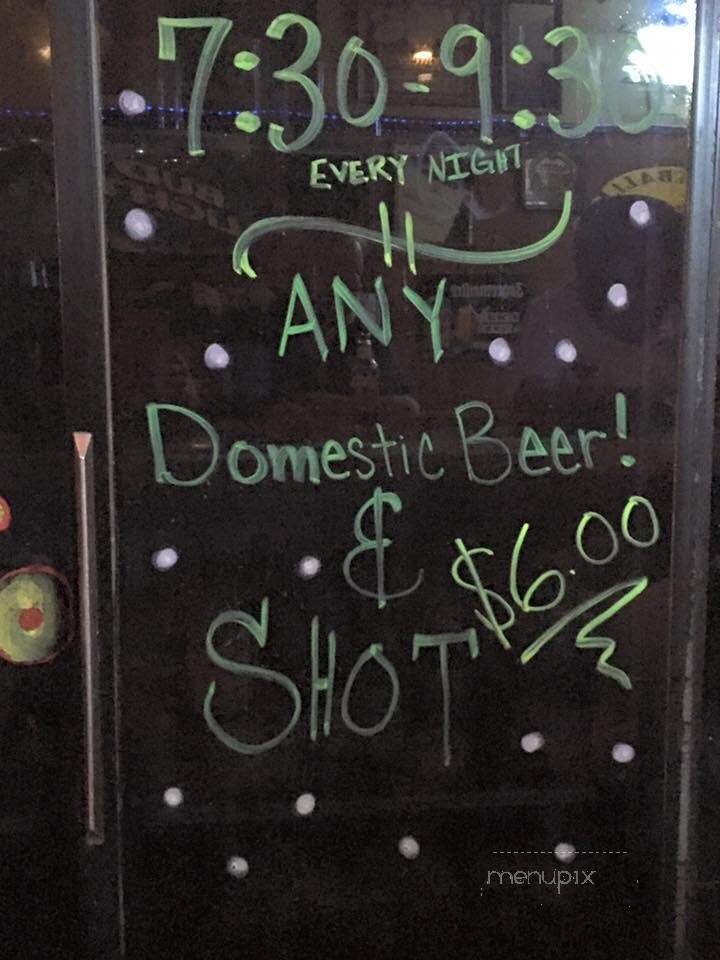 7:30-9:30
EVERY NIGHT
ANY
Domestic Beer!
&
$6.00
SHOT
menupix